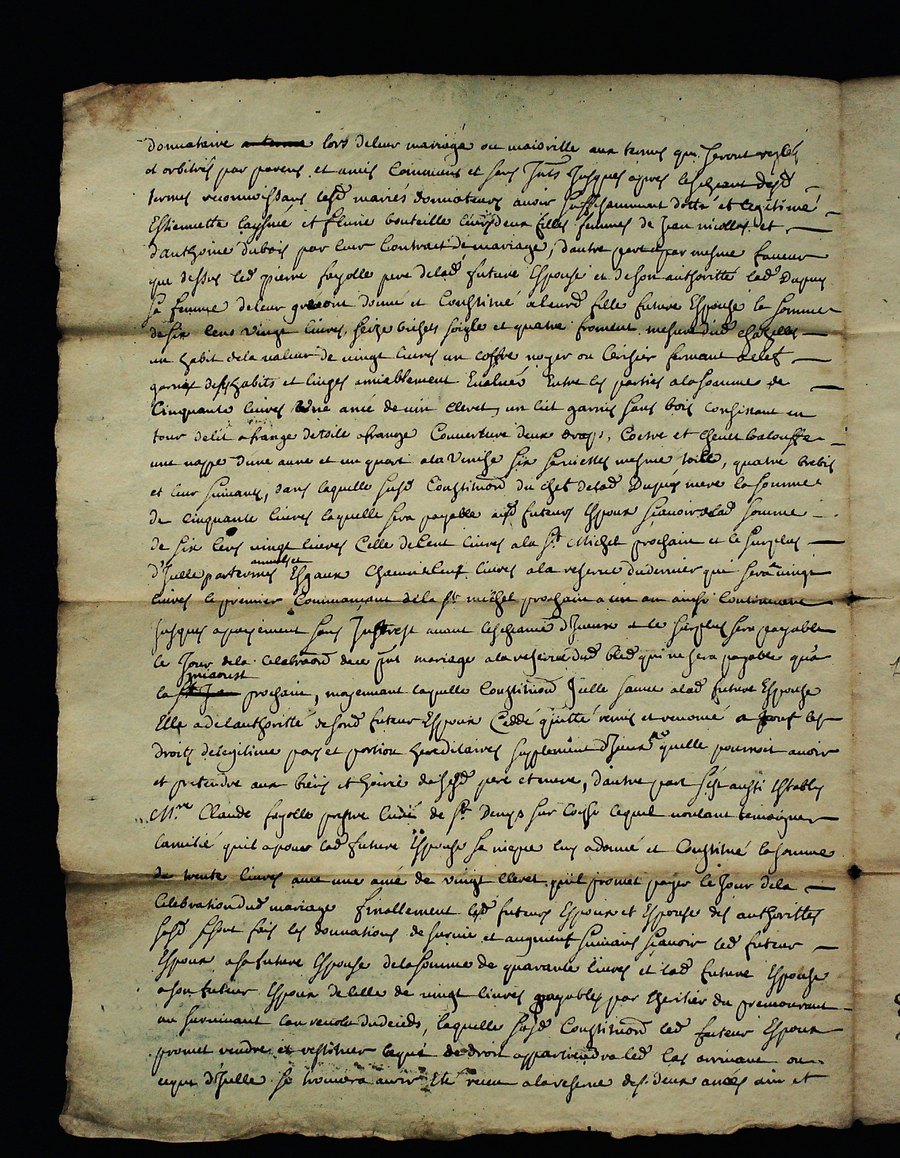 donnataire lors de leur mariage ou maiorille aux termes qui seront reglés
et arbitrés par parens et amis communs et sans Jnts Jusques apres lescheant desd
termes reconnoissans lesd mariés donnateurs avoir suffisamment dotté et legitimé
Estiennette et fleurie bouteille leurs deux filles femmes de Jean nicollas et
d'anthoine dubois par leur Contract de mariage, d'autre part par mesme faveur
que dessus led pierre fayolle pere de lad future Espouse et de son authoritté lad Dupuy
sa femme de leur gré ont donné et Constitué a leurd fille future Espouse la somme
de six cens vingt livres, seize bichets soigle et quatre froment mesure dud
un habit de la valeur de vingt livres un coffre noyer ou cerisier fermant a clef
garnis de ses habits et linges amiablement Evalués Entre les parties a la somme de
Cinquante livres une anée de vin cleret, un lict garnis sans bois consistant en
tour de lit a frange de toile a frange Couverture deux draps, Coetre et Chevet balouffe
une nappe d'une aune et un quart a la Venise six serviettes mesme toile, quatre brebis
et leur suivants, dans laquelle susd Constitution du chef de lad Dupuy mere la somme
de cinquante livres laquelle sera payable ausd futeurs Espoux sçavoir lad somme
de six cens vingt livres Celle de Cent livres a la St Michel prochain et le surplus
d'Jcelle par termes annuels et Esgaux Chacun de livres a la reserve du dernier qui sera vingt
livres le premier Commançant de la St michel prochain a un an ainsi Continuera
Jusques a payement sans Jnterest avant lescheance d'Jceux et le surplus sera payable
le Jour de la Celebration de ce pnt mariage a la reserve dud bled qui ne sera payable qu'a
la prochain, moyennant laquelle Constitution Jcelle sauve a lad future Espouse
Elle a de l'authoritté de sond futeur Espoux Ceddé quitté remis et renoncé a tous les
droits de legitime part et portion hereditaires supplement d'Jceux qu'elle pourroit avoir
et pretendre aux biens et hoirie de sesd pere et mere, d'autre part s'est aussi Establis
Mre Claude fayolle prestre Curé de St Denys sur Coise lequel voulant temoigner
l'amitié qu'il a pour lad future Espouse sa niepce luy a donné et Constitué la somme
de trente livres avec une anée de vingt cleret qu'il promet payer le Jour de la
Celebration dud mariage finallement lesd futeurs Espoux et Espouse des authorittés
susd se sont fais les donnations de survie et augment suivans sçavoir led futeur
Espoux a sa future Espouse de la somme de quarante livres et lad future Espouse
a son futeur Espoux de celle de vingt livres payables par l'heritier du premourant
au survivant l'an revolu du deceds, laquelle susd Constitution led futeur Espoux
promet rendre et restituer la que de droit appartiendra led Cas arrivant ou
ce que d'Jcelle se trouvera avoir Eté receu a la reserve des deux anées vin et